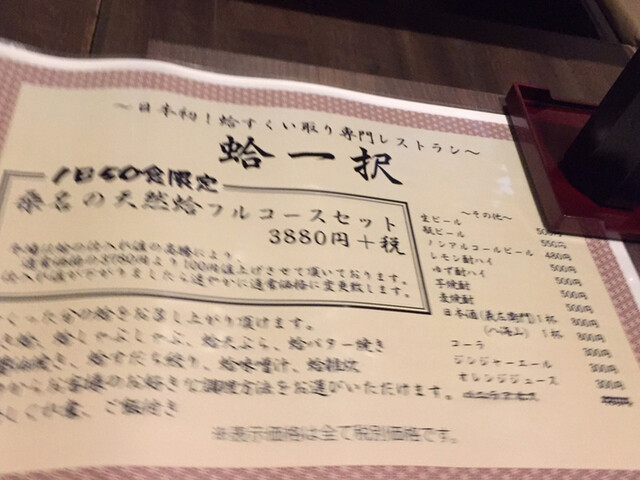 ～日本初！蛤すくい取り専門レストラン～
蛤一択
1日50食限定
桑名の天然蛤フルコースセット
3880円＋税
今場は蛤の仕入れ値の高騰により、
通常価格の3780円より100円値上げさせて頂いております。
仕入れ値が下がりましたら速やかに通常価格に変更致します。
くった分の蛤をお召し上がり頂けます。
き蛤、蛤しゃぶしゃぶ、蛤天ぷら、蛤バター焼き
焼き、蛤すだち絞り、蛤味噌汁、蛤雑炊
からお客様のお好きな調理方法をお選びいただけます。
ご飯付き
※表示価格は全て税別価格です。
～その他～
生ビール
瓶ビール 550円
ノンアルコールビール 480円
レモン酎ハイ 500円
ゆず酎ハイ 500円
芋焼酎 500円
麦焼酎 500円
日本酒(義左衛門)1杯 800円
(八海山) 1杯 800円
コーラ 300円
ジンジャーエール 300円
オレンジジュース 300円